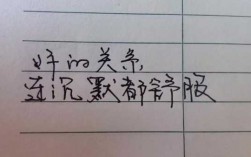 好的关系,
连沉默都舒服